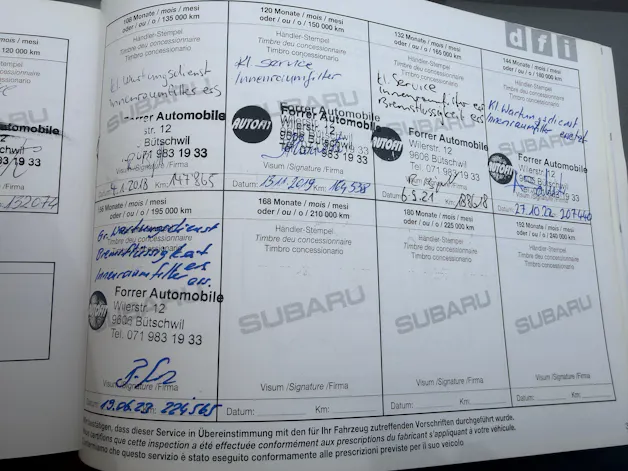 120 000 km
Automobile
33
/Firma
152074
108 Monate / mois / mesi
oder / ou / o / 135 000 km
Händler-Stempel
Timbre du concessionnaire
Timbro concessionario
Kl. Wartungsdienst
Innenraumfilter ers
SUBARU
Forrer Automobile
str. 12
Bütschwil
071 983 19 33
Visum/Signature/Firma
4.1.2018 Km: 147865
120 Monate / mois / mesi
oder / ou / o / 150 000 km
Händler-Stempel
Timbre du concessionnaire
Timbro concessionario
Kl. Service
Innenraumfilter
SUBARU
AUTOFIT
Forrer Automobile
Wilerstr. 12
9606 Bütschwil
Tel. 071 983 19 33
Visum/Signature/Firma
Datum: 13.11.2019 Km: 164538
132 Monate / mois / mesi
oder / ou / o / 165 000 km
Händler-Stempel
Timbre du concessionnaire
Timbro concessionario
Kl. Service
Innenraumfilter es
Bremsflüssigkeit es
SUBARU
Forrer Automobile
Wilerstr. 12
9606 Bütschwil
Tel. 071 983 19 33
Visum/Signature/Firma
Datum: 6.5.21 Km: 188618
dfi
144 Monate / mois / mesi
oder / ou / o / 180 000 km
Händler-Stempel
Timbre du concessionnaire
Timbro concessionario
Kl. Wartungsdienst
Innenraumfilter ersetzt
SUBARU
Forrer Automobile
Wilerstr. 12
9606 Bütschwil
Tel. 071 983 19 33
27.10.22 207440
156 Monate / mois / mesi
oder / ou / o / 195 000 km
Händler-Stempel
Timbre du concessionnaire
Timbro concessionario
Gr. Wartungsdienst
Bremsflüssigkeit es
Innenraumfilter ers.
Forrer Automobile
Wilerstr. 12
9606 Bütschwil
Tel. 071 983 19 33
Visum/Signature/Firma
Datum: Km:
224565
168 Monate / mois / mesi
oder / ou / o / 210 000 km
Händler-Stempel
Timbre du concessionnaire
Timbro concessionario
SUBARU
Visum /Signature /Firma
Datum: Km:
180 Monate / mois / mesi
oder / ou / o / 225 000 km
Händler-Stempel
Timbre du concessionnaire
Timbro concessionario
SUBARU
Visum /Signature /Firma
Datum: Km:
192 Monate / mois / mesi
oder / ou / o / 240 000 km
Händler-Stempel
Timbre du concessionnaire
Timbro concessionario
SUBARU
Visum /Signature /Firma
Datum: Km:
bestätigen, dass dieser Service in Übereinstimmung mit den für Ihr Fahrzeug zutreffenden Vorschriften durchgeführt wurde.
certifions que cette inspection a été effectuée conformément aux prescriptions du fabricant s'appliquant à votre véhicule.
che questo servizio è stato eseguito conformemente alle prescrizioni previste per il suo veicolo.